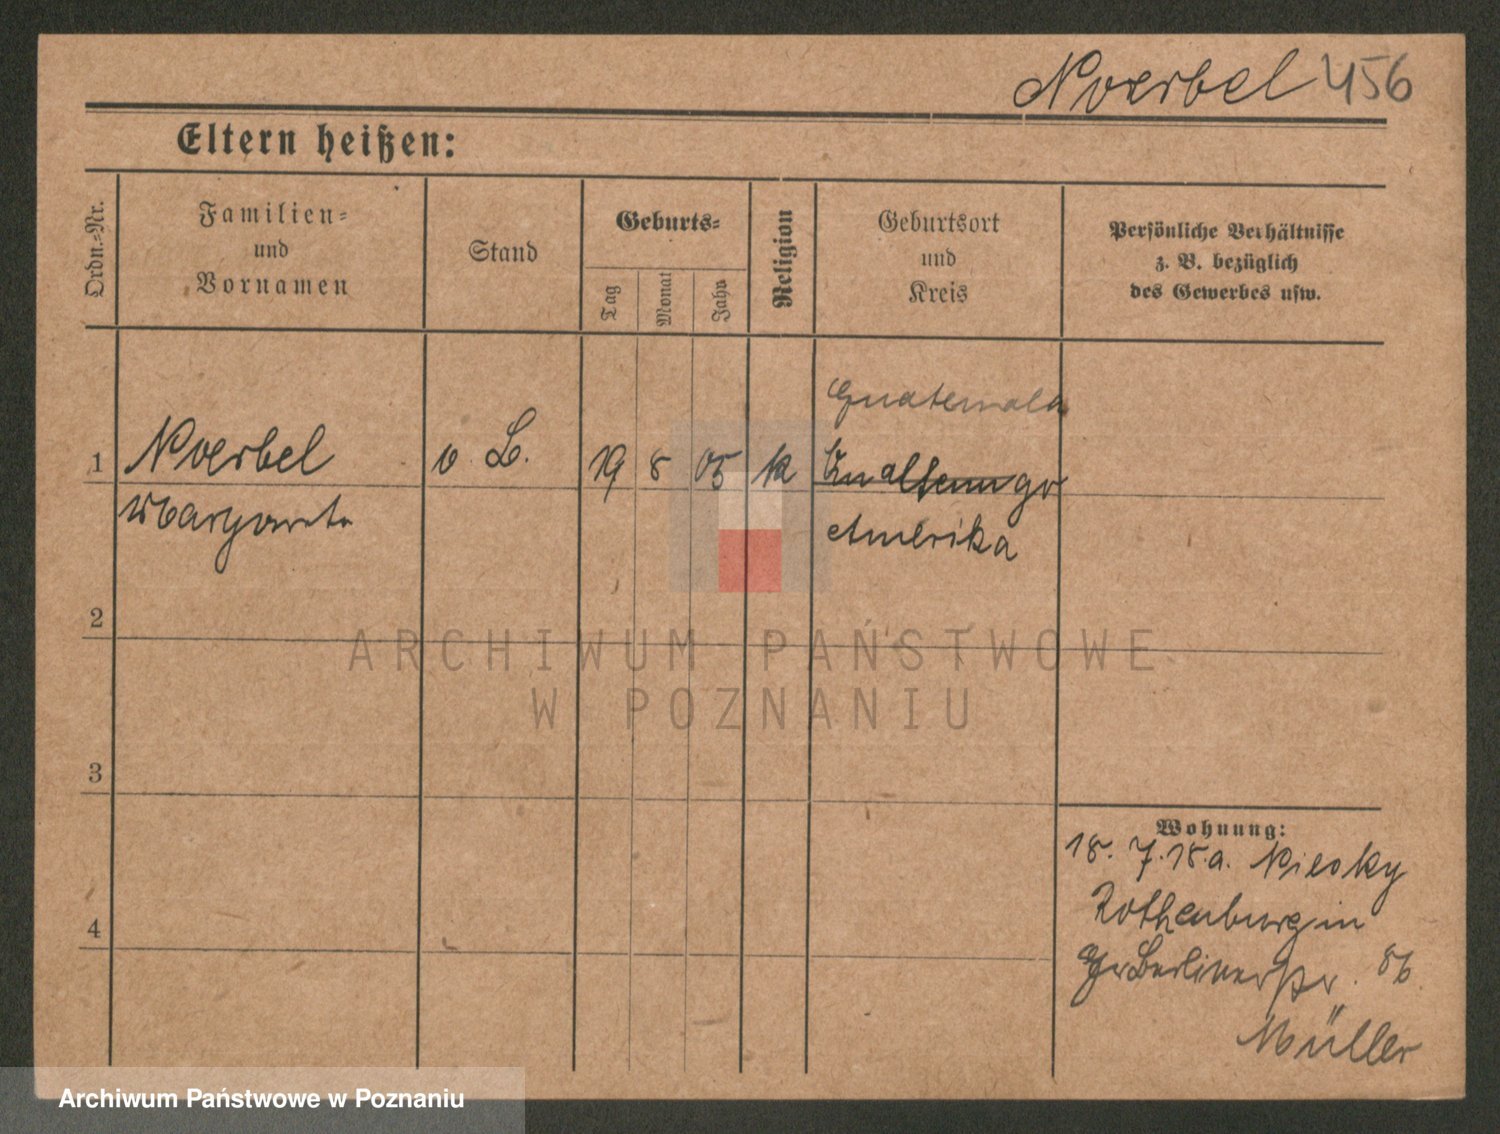 Noerbel 456
Eltern heißen:
Ordn.-Nr.
Familien-
und
Vornamen
Stand
Geburts-
Tag
Monat
Jahr
Religion
Geburtsort
und
Kreis
Persönliche Verhältnisse
z. B. bezüglich
des Gewerbes usw.
Guatemala
1 Noerbel o B. 19 8 05 k
Margareta
Amerika
2
ARCHIWUM PAŃSTWOWE
W POZNANIU
3
4
Wohnung:
18. 7. 18. a. Niesky
Rothenburg in
Gr Berliner str. 86
Müller
Archiwum Państwowe w Poznaniu